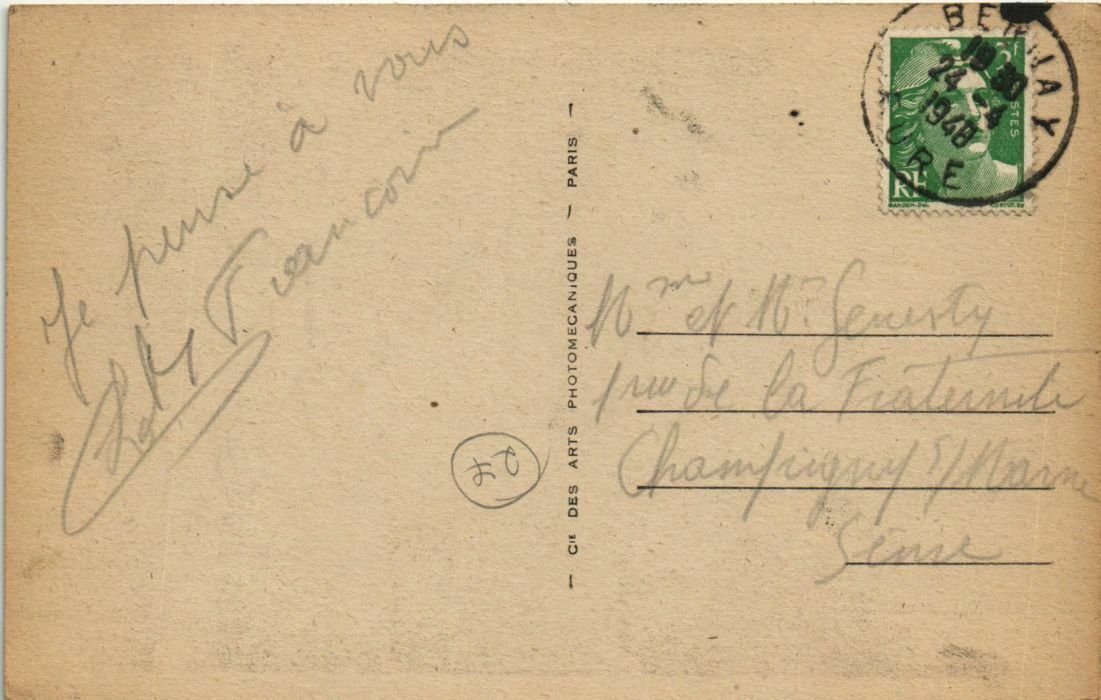 Je pense à vous
Françoise
— Cie DES ARTS PHOTOMECANIQUES — PARIS —
27
BERNAY
EURE
24 -4
1948
3f
POSTES
RF
GANDON-Del.
Mme et Mr. Genesty
1 rue de la Fraternité
Champigny s/ Marne
Seine